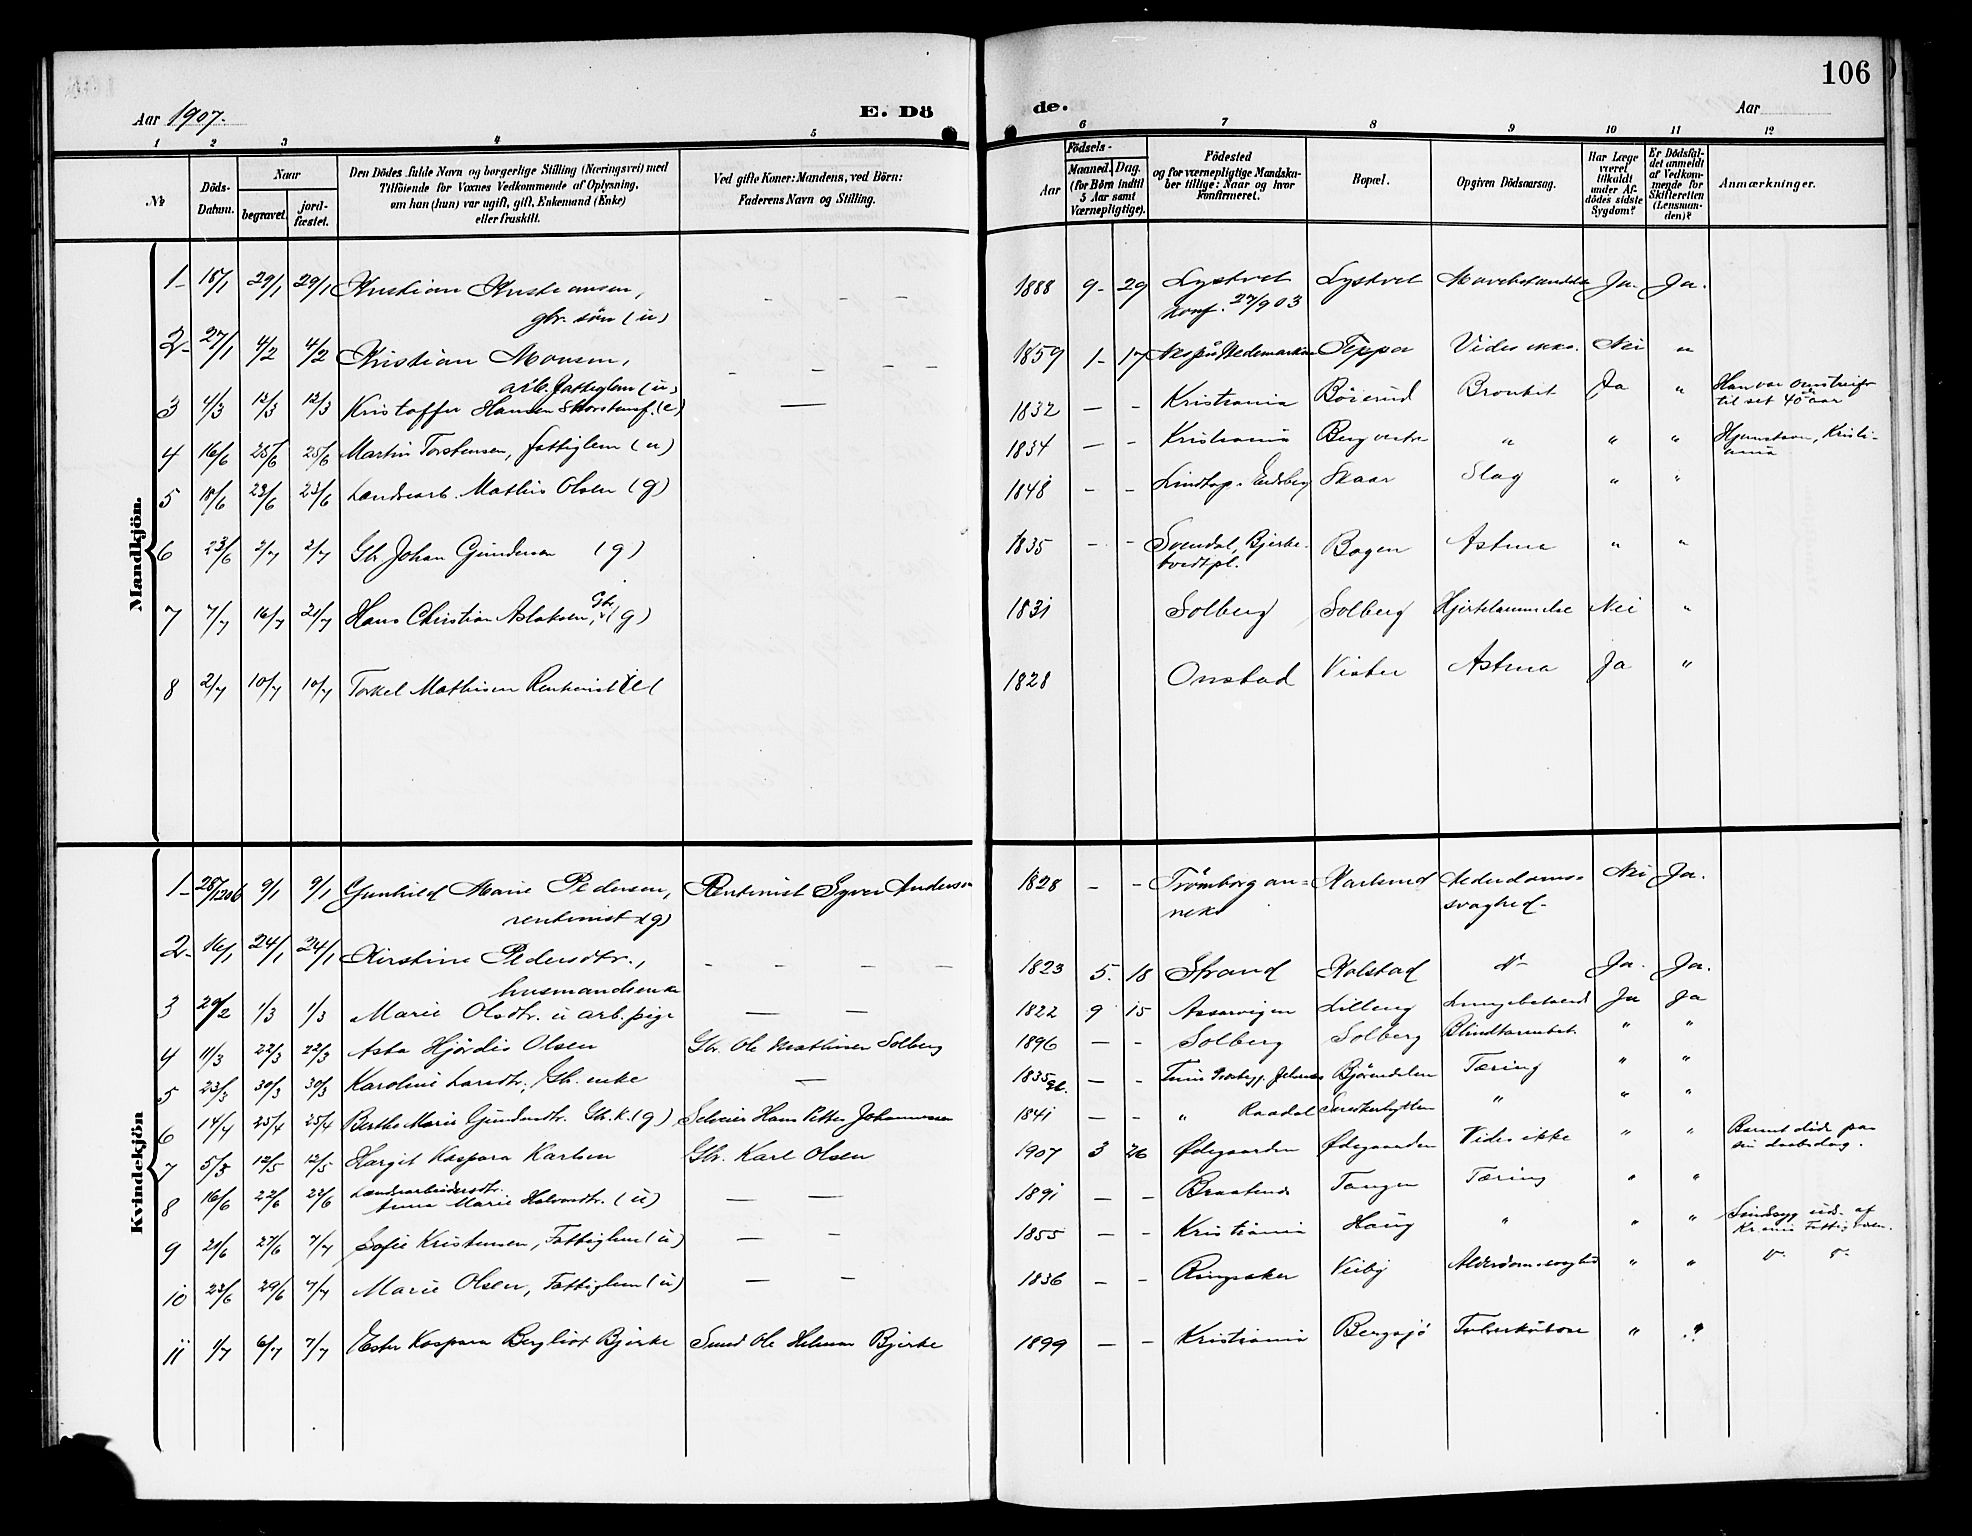 106
Aar 1907.
E. Dö
de.
Aar
1 2 3 4 5 6 7 8 9 10 11 12
№
Döds-Datum.
Naar
begravet.
jord-fæstet.
Den Dödes fulde Navn og borgerlige Stilling (Næringsvei) med
Tilföiende for Voxnes Vedkommende af Oplysning,
om han (hun) var ugift, gift, Enkemand (Enke)
eller fraskilt.
Ved gifte Koner: Mandens, ved Börn:
Faderens Navn og Stilling.
Aar
Födsels-
Maaned. Dag.
(for Börn indtil
5 Aar samt
Værnepligtige).
Födested
og for værnepligtige Mandska-
ber tillige: Naar og hvor
konfirmeret.
Bopæl.
Opgiven Dödsaarsag.
Har Læge
været
tilkaldt
under Af-
dödes sidste
Sygdom?
Er Dödsfal-
det anmeldt
af Vedkom-
mende for
Skifteretten
(Lensman-
den)?
Anmærkninger.
Mandkjön.
1- 18/1 29/1 29/1 Kristian Kristiansen, - - - - 1888 9- 29 Lystvet Lystvet Ja. Ja.
gbr. sön (u) konf. 27/9 03
2- 27/1 4/2 4/2 Kristian Monsen, - - - - 1859 1- 17 Teppa Vides ikke. Nei "
arb. Fattiglem (u)
3 4/3 13/3 13/3 Kristoffer Hansen Skorstensf. (e) — 1832 — - Kristiania Böierud Bronkit Ja " Han var omstreifer
til set 40 aar
4 16/6 25/6 25/6 Martin Torstensen, fattiglem (u) 1834 — - Kristiania Berg vestre " " " Hjemstavn, Kristi-
ania
5 18/6 23/6 23/6 Landsarb. Mathis Olsen (g) 1848 - - Eidsberg Skaar Slag " "
6 23/6 2/7 2/7 Gbr Johan Gundersen (g) 1835 - - Svendal, Bjerke- Bogen Astma " "
tvedt pl.
7 7/7 16/7 21/7 Hans Christian Aslaksen, Gbr. (g) 1831 Solberg Solberg Hjertelammelse Nei "
8 2/7 10/7 10/7 Torkel Mathisen Rentenist 1828 Onstad Vister Astma Ja "
Kvindekjön
1- 28/12 06 9/1 9/1 Gunhild Marie Pedersen, Rentenist Syver Andersen 1828 - - Trömborg an- Karlsrud Alderdoms- Nei Ja.
rentenist (g) neks svaghed-
2- 16/1 24/1 24/1 Kirstine Pedersdtr., - - - - 1823 5. 18 Strand Kolstad Ja. Ja.
husmandsenke
3 20/2 1/3 1/3 Marie Olsdtr. u arb. pige — — 1822 9 15 Lilleng Lungebetænd Ja Ja
4 11/3 22/3 22/3 Asta Hjördis Olsen Gbr. Ole Mathisen Solberg 1896 — - Solberg Solberg Blindtarmbet. " "
5 23/3 30/3 30/3 Karoline Larsdtr., Gb. enke — 1835 — - Björndalen Tæring " "
6 14/4 25/4 25/4 Berthe Marie Gundersdtr. Gb. k. (g) Selveier Hans Petter Johannessen 1841 — - " Raadal " " "
7 5/5 12/5 12/5 Margit Kaspara Karlsen Gbr. Karl Olsen 1907 3 26 Ødegaarden Ødegaarden Vides ikke " " Barnet döde paa
sin daabsdag.
8 16/6 22/6 22/6 Landsarbeidersdtr.
Anna Marie Halvorsdtr. (u) — — 1891 — - Braatene Tangen Tæring " "
9 21/6 27/6 7/7 Sofie Kristensen, Fattiglem (u) — - 1855 — - Kristiania Haug " " " Sindssyg uds. af
Kr.ania Fattigvæsen.
10 23/6 29/6 7/7 Marie Olsen, Fattiglem (u) — - 1836 - - Ringsaker Veiby Alderdomssvaghed " "
11 1/7 6/7 7/7 Ester Kaspara Bergliot Bjerke Smed Ole Helmer Bjerke 1899 — - Kristiania Bergsjö Tuberkulose " "